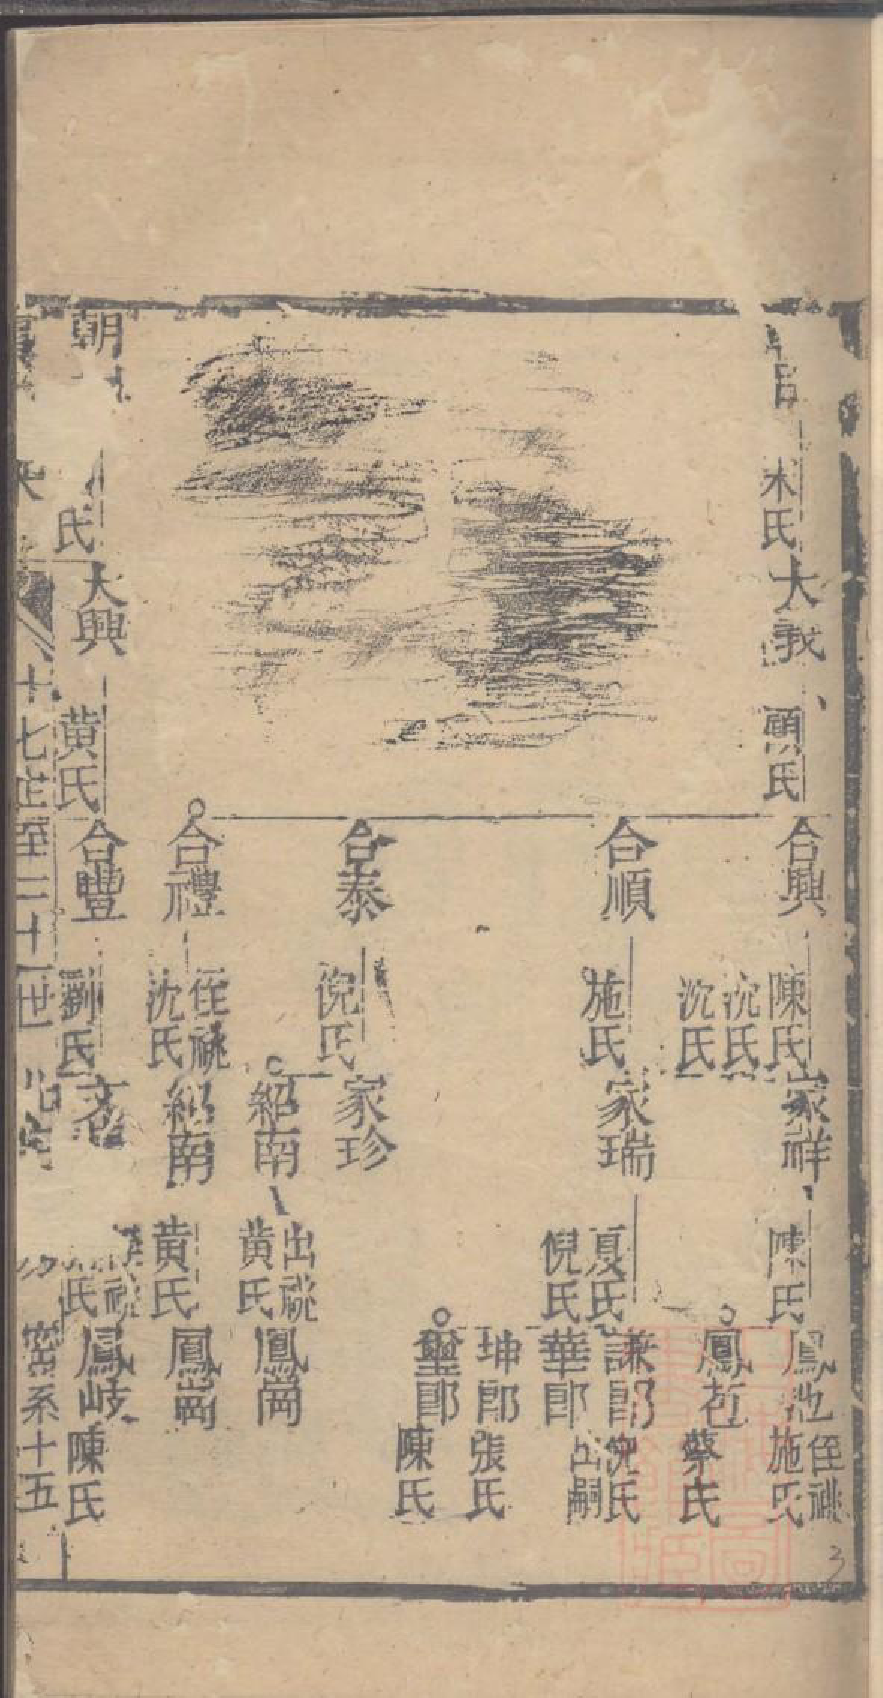 木氏
大義
顧氏
合興
陳氏
沈氏
沈氏
家祥
陳氏
鳳池
侄祧
施氏
鳳苞
蔡氏
合順
施氏
家瑞
夏氏
倪氏
謙郎
倪氏
華郎
出嗣
坤郎
張氏
璽郎
陳氏
合泰
倪氏
家珍
紹南
出祧
黃氏
鳳崗
合禮
侄祧
沈氏
紹南
黃氏
鳳崗
朝
氏
大興
黃氏
合豐
劉氏
祧
氏
鳳岐
陳氏
十七世至二十一世
密系十五
3